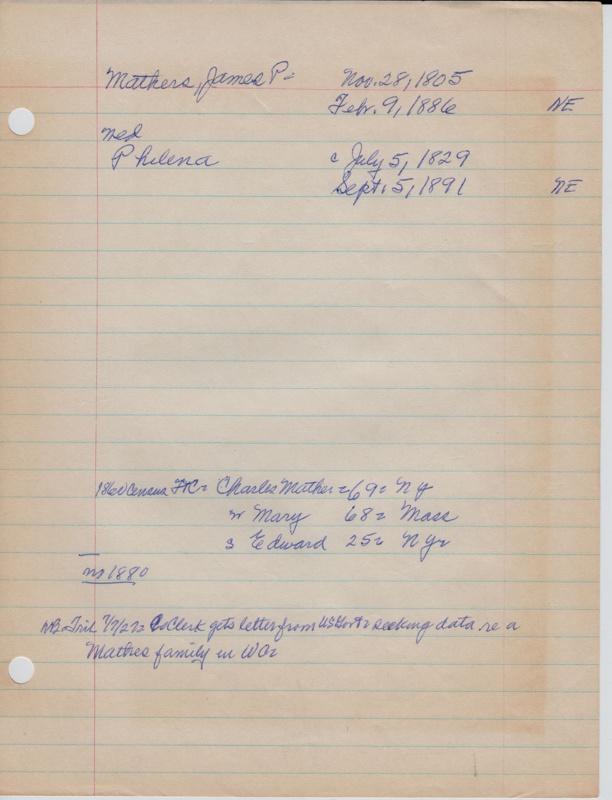 Mathers, James P= Nov. 28, 1805
Febr. 9, 1886 NE
med
Philena c July 5, 1829
Sept. 5, 1891 NE
1860 Census = Charles Mather = 69 = NY
w Mary 68 = Mass
s Edward 25 = NY=
no 1880
7/7/27= Co Clerk gets letter from US Govt= seeking data re a
Mathes family in WC=